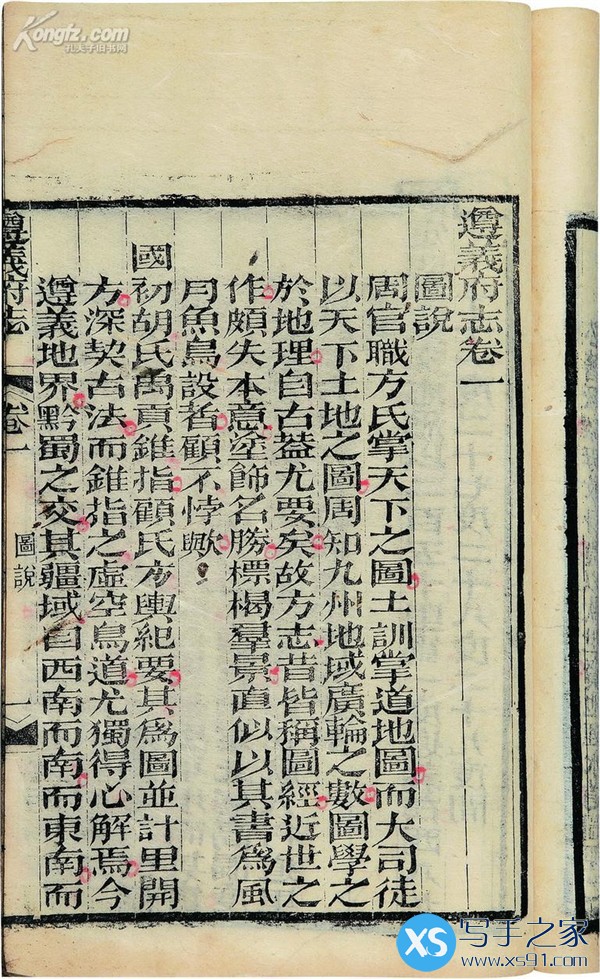 遵義府志卷一
圖說
周官職方氏掌天下之圖土訓掌道地圖而大司徒
以天下土地之圖周知九州地域廣輪之數圖學之
於地理自古葢尤要矣故方志昔皆稱圖經近世之
作頗失本意塗師名勝標楬羣景直似以其書爲風
月魚鳥設者顧不悖歟
國初胡氏禹貢錐指顧氏方輿紀要其爲圖並計里開
方深契古法而錐指之虛空鳥道尤獨得心解焉今
遵義地界黔蜀之交其疆域自西南而南而東南而
遵義府志
卷一
圖說
一
Kongfz.com
孔夫子旧书网
XS
写手之家
www.xs91.com